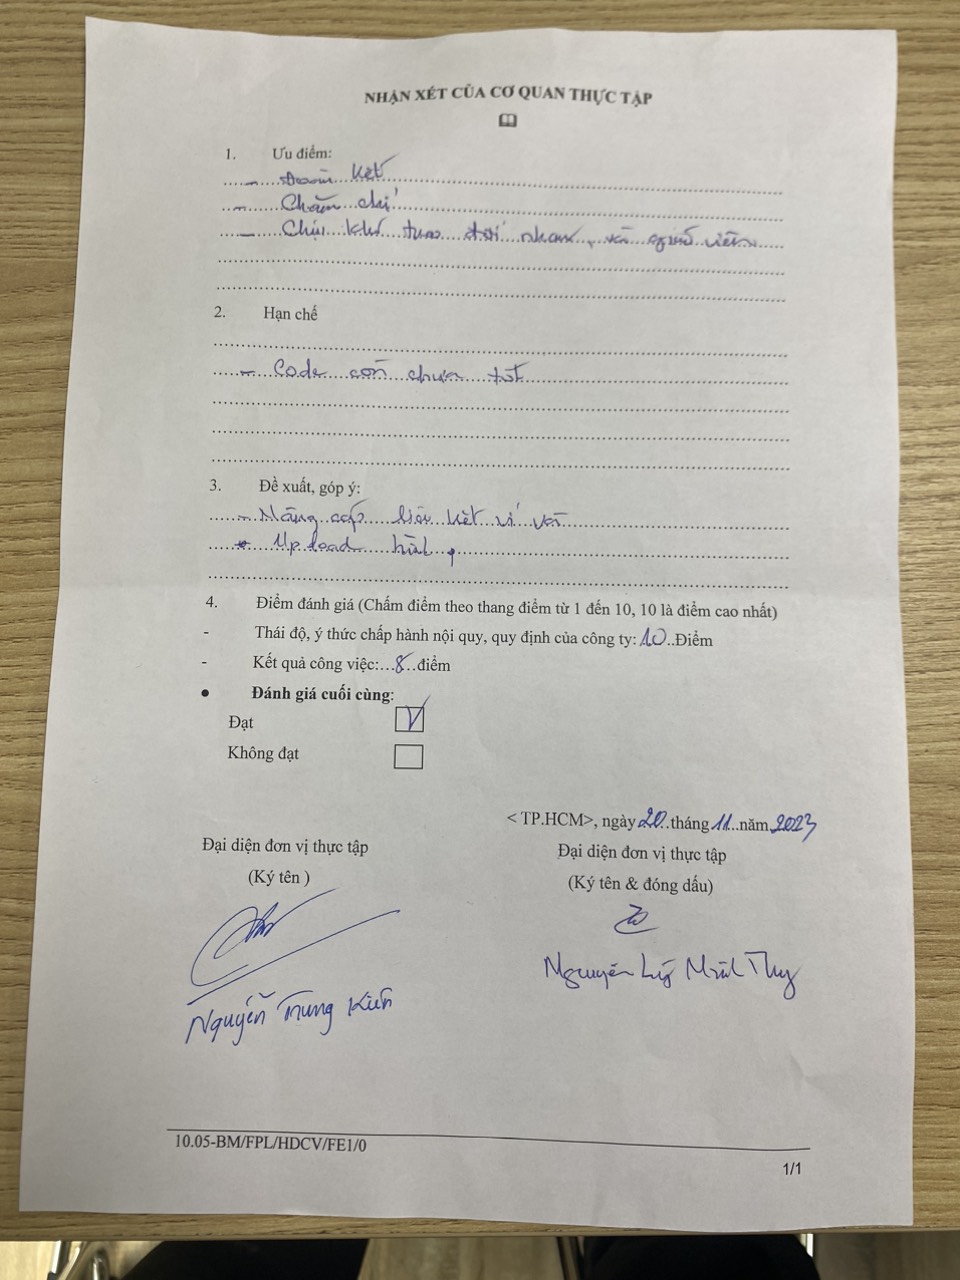 NHẬN XÉT CỦA CƠ QUAN THỰC TẬP
1. Ưu điểm:
- Đoàn kết
- Chăm chỉ
- Chịu khó trao đổi nhau, và
2. Hạn chế
- Code còn chưa tốt
3. Đề xuất, góp ý:
- Nâng cấp liên kết ví
* Upload hình
4. Điểm đánh giá (Chấm điểm theo thang điểm từ 1 đến 10, 10 là điểm cao nhất)
- Thái độ, ý thức chấp hành nội quy, quy định của công ty: 10..Điểm
- Kết quả công việc:...8..điểm
• Đánh giá cuối cùng:
Đạt V
Không đạt
< TP.HCM>, ngày 20..tháng 11..năm 2023
Đại diện đơn vị thực tập
(Ký tên )
Nguyễn Trung Kiên
Đại diện đơn vị thực tập
(Ký tên & đóng dấu)
Nguyễn Lý Minh Thy
10.05-BM/FPL/HDCV/FE1/0
1/1